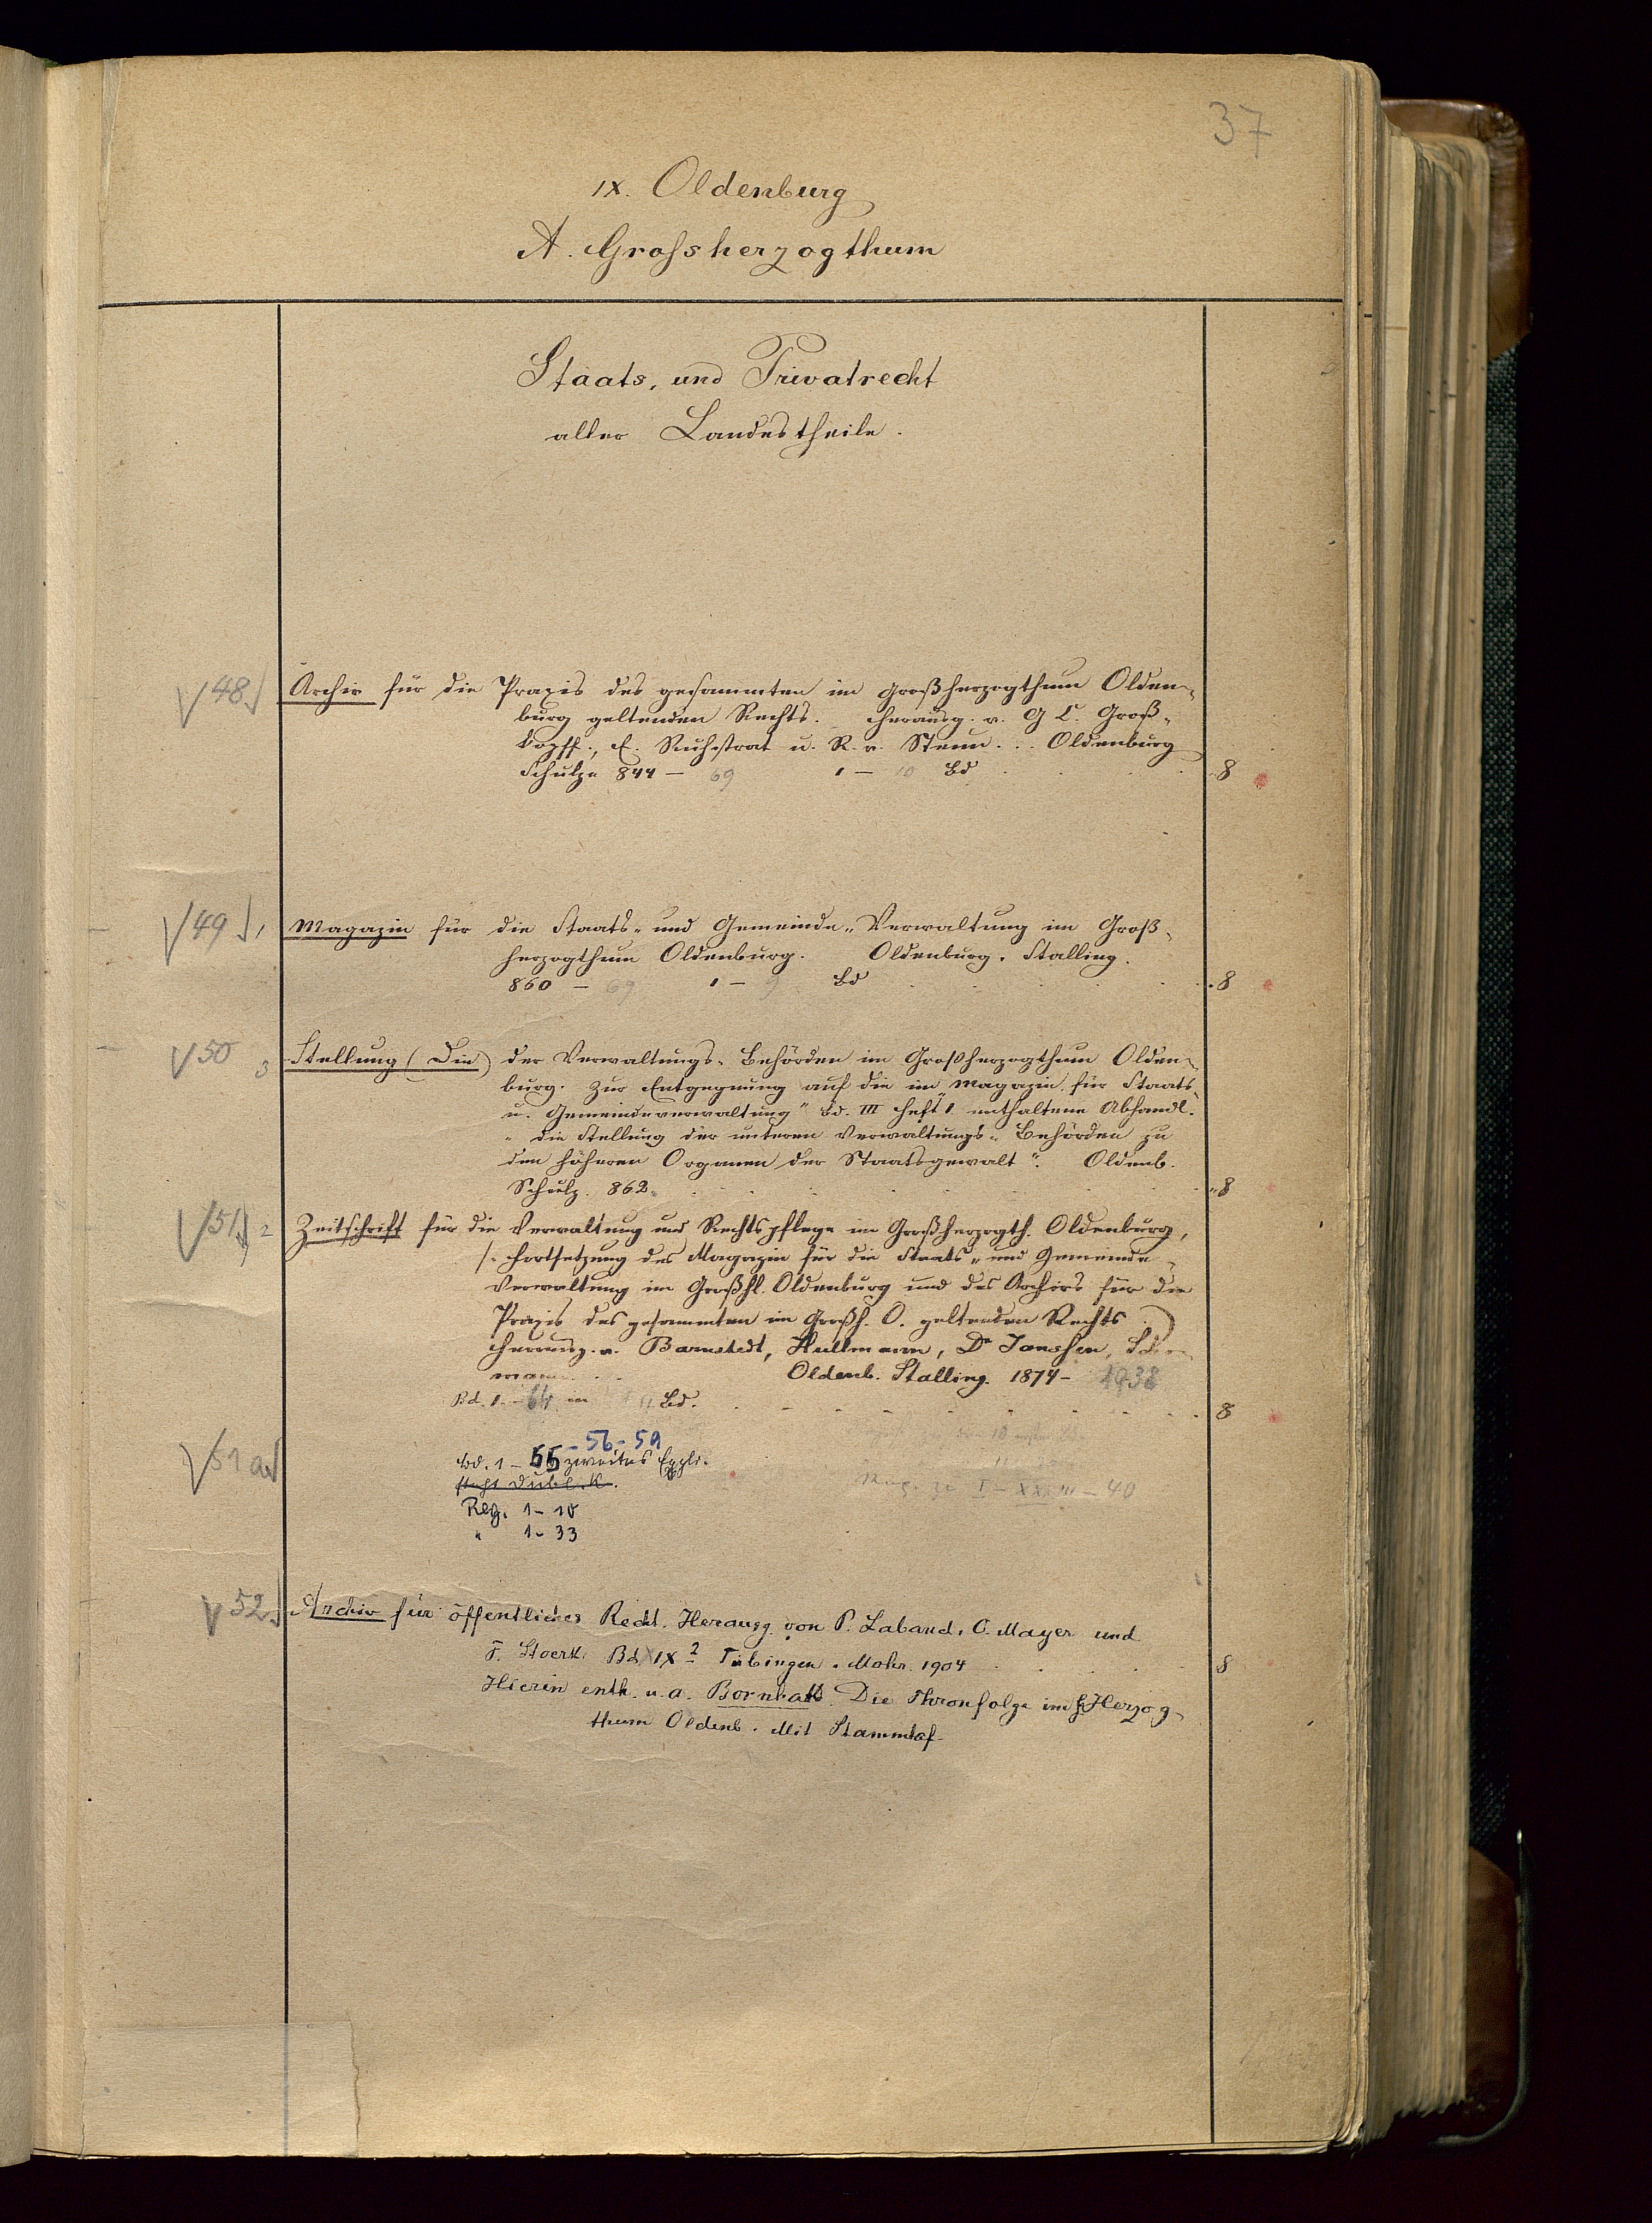 37
IX. Oldenburg
A. Grossherzogthum
Staats- und Privatrecht
aller Landestheile.
48 Archiv für die Praxis des gesammten im Großherzogthum Olden-
burg geltenden Rechts. Herausg. v. G C. Groß-
kopff, E. Ruhstrat u. R. v. Steun... Oldenburg
Schulze 844 – 69 1 – 10 Bd 8
49 1 Magazin für die Staats- und Gemeinde-Verwaltung im Groß-
herzogthum Oldenburg. Oldenburg. Stalling.
860 – 69 1 – 9 Bd 8
50 3 Stellung (Die) der Verwaltungs-Behörden im Großherzogthum Olden-
burg. Zur Entgegnung auf die im „Magazin für Staats
u. Gemeindeverwaltung" Bd. III Heft 1 enthaltene Abhandl.
„die Stellung der unteren Verwaltungs-Behörden zu
den höheren Organen der Staatsgewalt". Oldenb.
Schulz. 862. 8
51 2 Zeitschrift für die Verwaltung und Rechtspflege im Großherzogth. Oldenburg,
(. Fortsetzung des Magazin für die Staats- und Gemeinde-
Verwaltung im Großh. Oldenburg und des Archivs für die
Praxis des gesammten im Großh. O. geltenden Rechts.)
Herausg. v. Barnstedt, Hullmann, Dr Janssen,
Oldenb. Stalling. 1874 – 1938
Bd. 1 – 64 in Bd. 8
– 56 – 59
51a Bd. 1 – 55 zweites Expl.
steht Dublik.
Reg. 1 – 10
" 1 – 33
– 40
52 Archiv für öffentliches Recht. Herausg. von P. Laband, O. Mayer und
F. Stoerk. Bd. XIX 2 Tübingen. Mohr. 1904 8
Hierin enth. u. a. Bornhak. Die Thronfolge im Herzog-
thum Oldenb. Mit Stammtaf.